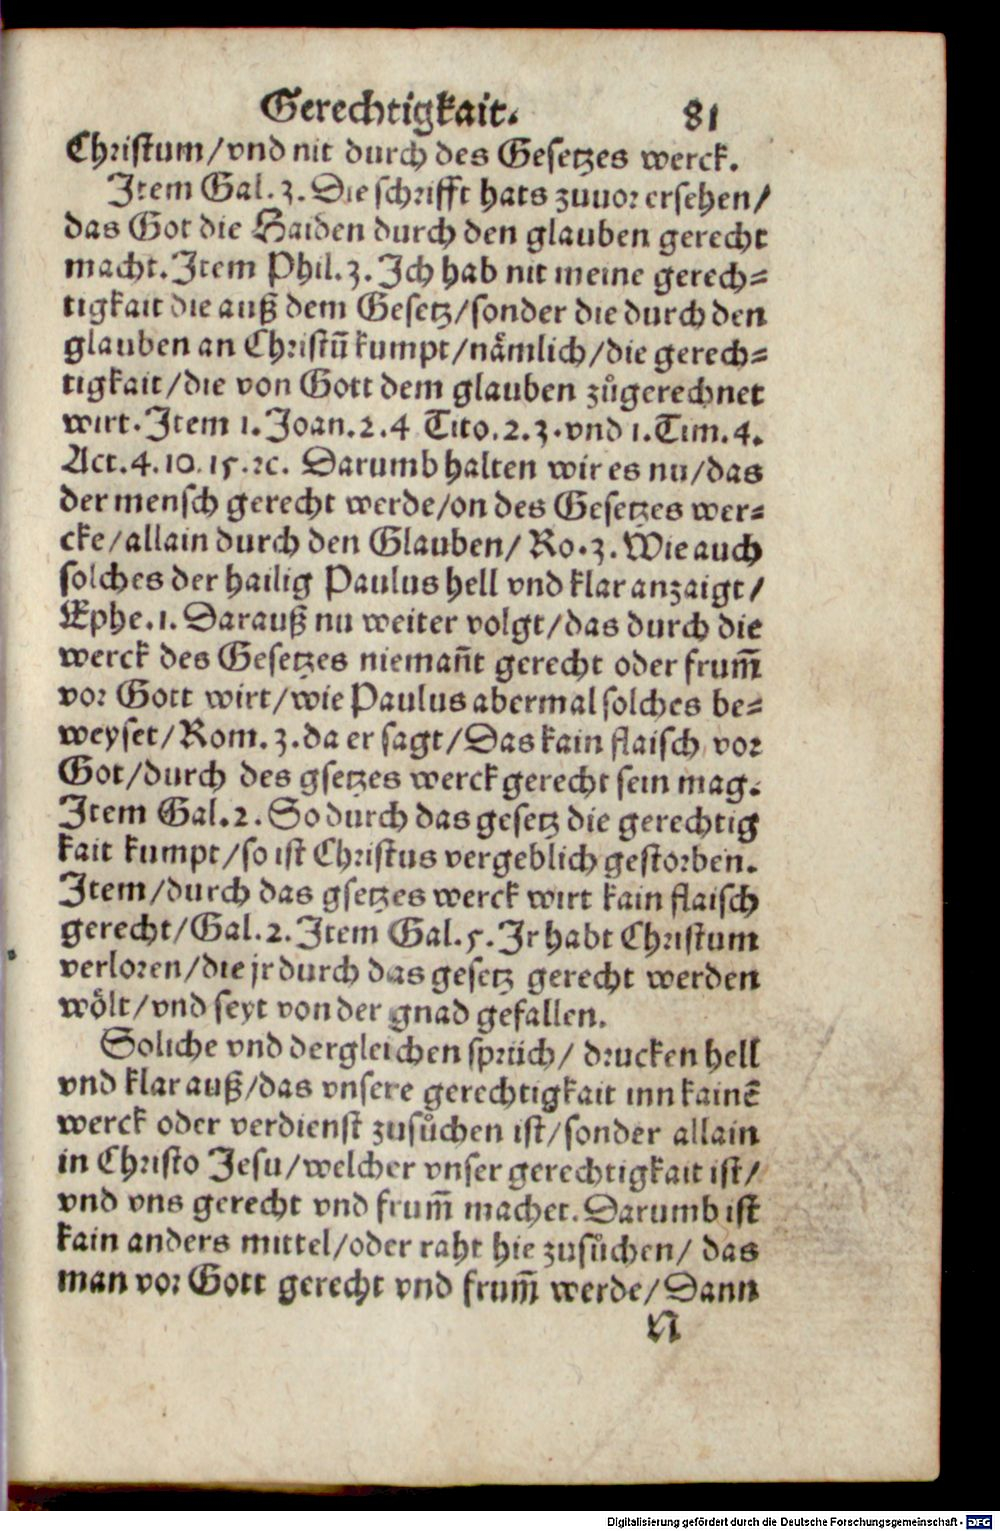 Gerechtigkait. 81
Christum/vnd nit durch des Gesetzes werck.
Item Gal. 3. Die schrifft hats zuuor ersehen/
das Got die Haiden durch den glauben gerecht
macht. Item Phil. 3. Ich hab nit meine gerech⸗
tigkait die auß dem Gesetz/sonder die durch den
glauben an Christũ kumpt/nåmlich/die gerech⸗
tigkait/die von Gott dem glauben zůgerechnet
wirt. Item 1. Joan. 2. 4 Tito. 2. 3. vnd 1. Tim. 4.
Act. 4. 10. 15. ꝛc. Darumb halten wir es nu/das
der mensch gerecht werde/on des Gesetzes wer⸗
cke/allain durch den Glauben/ Ro. 3. Wie auch
solches der hailig Paulus hell vnd klar anzaigt/
Ephe. 1. Darauß nu weiter volgt/das durch die
werck des Gesetzes niemañt gerecht oder frum̃
vor Gott wirt/wie Paulus abermal solches be⸗
weyset/Rom. 3. da er sagt/Das kain flaisch vor
Got/durch des gsetzes werck gerecht sein mag.
Item Gal. 2. So durch das gesetz die gerechtig
kait kumpt/so ist Christus vergeblich gestorben.
Item/durch das gsetzes werck wirt kain flaisch
gerecht/Gal. 2. Item Gal. 5. Ir habt Christum
verloren/die jr durch das gesetz gerecht werden
wôlt/vnd seyt von der gnad gefallen.
Soliche vnd dergleichen sprüch/ drucken hell
vnd klar auß/das vnsere gerechtigkait inn kainẽ
werck oder verdienst zusůchen ist/sonder allain
in Christo Jesu/welcher vnser gerechtigkait ist/
vnd vns gerecht vnd frum̃ machet. Darumb ist
kain anders mittel/oder raht hie zusůchen/ das
man vor Gott gerecht vnd frum̃ werde/Dann
N
Digitalisierung gefördert durch die Deutsche Forschungsgemeinschaft - DFG